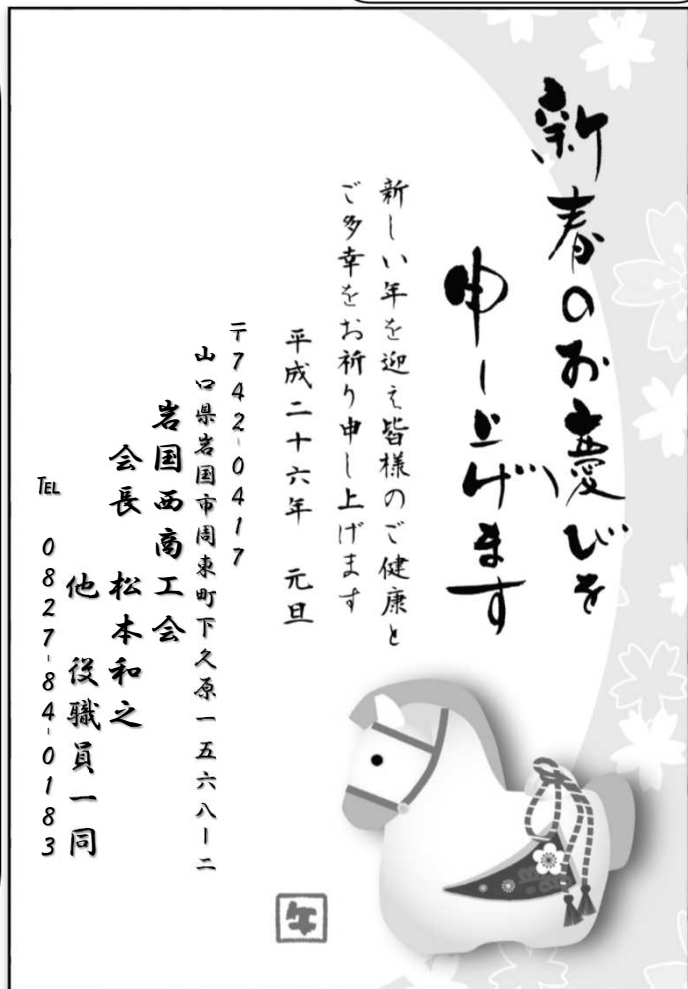 新春のお慶びを
申し上げます
新しい年を迎え皆様のご健康と
ご多幸をお祈り申し上げます
平成二十六年 元旦
〒742-0417
山口県岩国市周東町下久原一五六八ー二
岩国西商工会
会長 松本和之
他 役職員一同
TEL 0827-84-0183
午